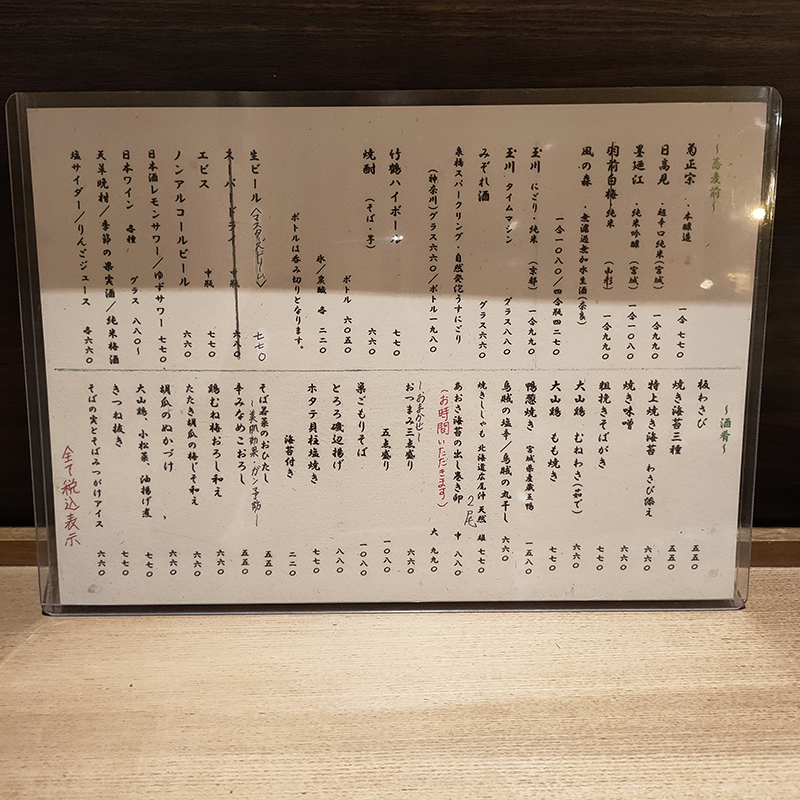 ～蕎麦前～
菊正宗 ・本醸造 一合 七七〇
日高見 ・超辛口純米(宮城) 一合九九〇
墨廼江 ・純米吟醸(宮城) 一合一〇八〇
羽前白梅・純米 (山形) 一合九九〇
風の森 ・無濾過無加水生酒(奈良)
一合一〇八〇/四合瓶四二七〇
玉川 にごり・純米 (京都) 一合九九〇
玉川 タイムマシン グラス八八〇
みぞれ酒 グラス六六〇
泉橋スパークリング・自然発泡うすにごり
(神奈川)グラス六六〇/ボトル一九八〇
竹鶴ハイボール 七七〇
焼酎 (そば・芋) 六六〇
ボトル 六〇五〇
氷/炭酸 各 二二〇
ボトルは呑み切りとなります。
生ビール 七七〇
スーパードライ 中瓶 六八〇
エビス 中瓶 七七〇
ノンアルコールビール 六六〇
日本酒レモンサワー/ゆずサワー 七七〇
日本ワイン 各種 グラス 八八〇～
天草晩柑/季節の果実酒/純米梅酒
塩サイダー/りんごジュース 各六六〇
～酒肴～
板わさび 五五〇
焼き海苔三種 五五〇
特上焼き海苔 わさび添え 六六〇
焼き味噌 六六〇
粗挽きそばがき 七七〇
大山鶏 むねわさ(茹で) 六六〇
大山鶏 もも焼き 七七〇
鴨葱焼き 宮城県産蔵王鴨 一五八〇
烏賊の塩辛/烏賊の丸干し 六六〇
焼きししゃも 北海道広尾沖 天然 雄 七七〇
2尾
あおさ海苔の出し巻き卵 中 八八〇
(お時間いただきます) 大 九九〇
～おまかせ～
おつまみ三点盛り 六六〇
五点盛り 一〇八〇
巣ごもりそば 一〇八〇
とろろ磯辺揚げ 八八〇
ホタテ貝柱塩焼き 七七〇
海苔付き 二二〇
そば若菜のおひたし 五五〇
～美肌効果・ガン予防～
辛みなめこおろし 五五〇
鶏むね梅おろし和え 六六〇
たたき胡瓜の梅じそ和え 六六〇
胡瓜のぬかづけ 六六〇
大山鶏、小松菜、油揚げ煮 七七〇
きつね抜き 七七〇
そばの実とそばみつがけアイス 六六〇
全て税込表示